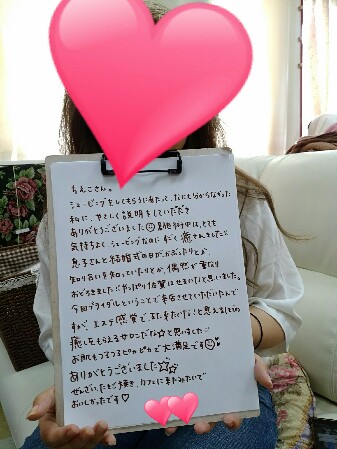 ちえこさん。
シェービングをしてもらうにあたって、なにも分からなかった
私に、やさしく説明をしていただき
ありがとうございました 施術中は、とても
気持ちよく、シェービングなのにすごく癒されました
息子さんと結婚式の日がかぶったりとか、
知り合いを知っていたりとか、偶然が重なり
おどろきました やっぱり佐賀はせまいなと思いました。
今回ブライダルということで来店させていただいたんで
すが、エステ感覚で、また来たいな と思えるほどの
癒しをもらえるサロンだな☆と思いました
お肌もつるつるピカピカで大満足です
ありがとうございました☆☆
ぜんざい、たもく焼き、カフェに来たみたいで
おいしかったです♡